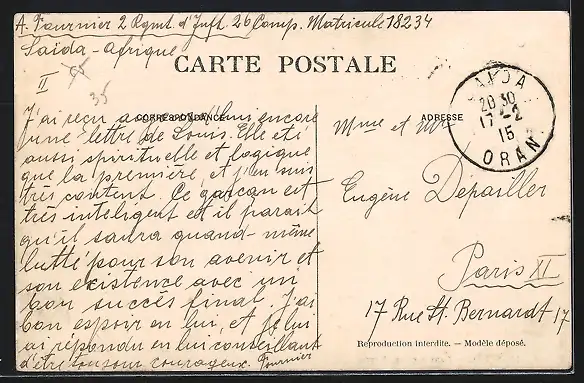 A. Fournier 2 Rgmt. d'Inft. 26 Comp. Matricule 18234
Saida - Afrique
II
35
CARTE POSTALE
CORRESPONDANCE
ADRESSE
SAIDA
20 30
17 -2
15
ORAN
J'ai reçu aujourd'hui encore
une lettre de Louis. Elle est
aussi spirituelle et logique
que la première, et j'en suis
très content. Ce garçon est
très inteligent et il parait
qu'il saura quand-même
lutté pour son avenir et
son existence avec un
bon succès final. J'ai
bon espoir en lui, et je lui
ai répondu en lui conseillant
d'être toujour courageux. Fournier
Mme et Mr
Eugène Dépailler
Paris XI
17 Rue St. Bernardt 17
Reproduction interdite. — Modèle déposé.